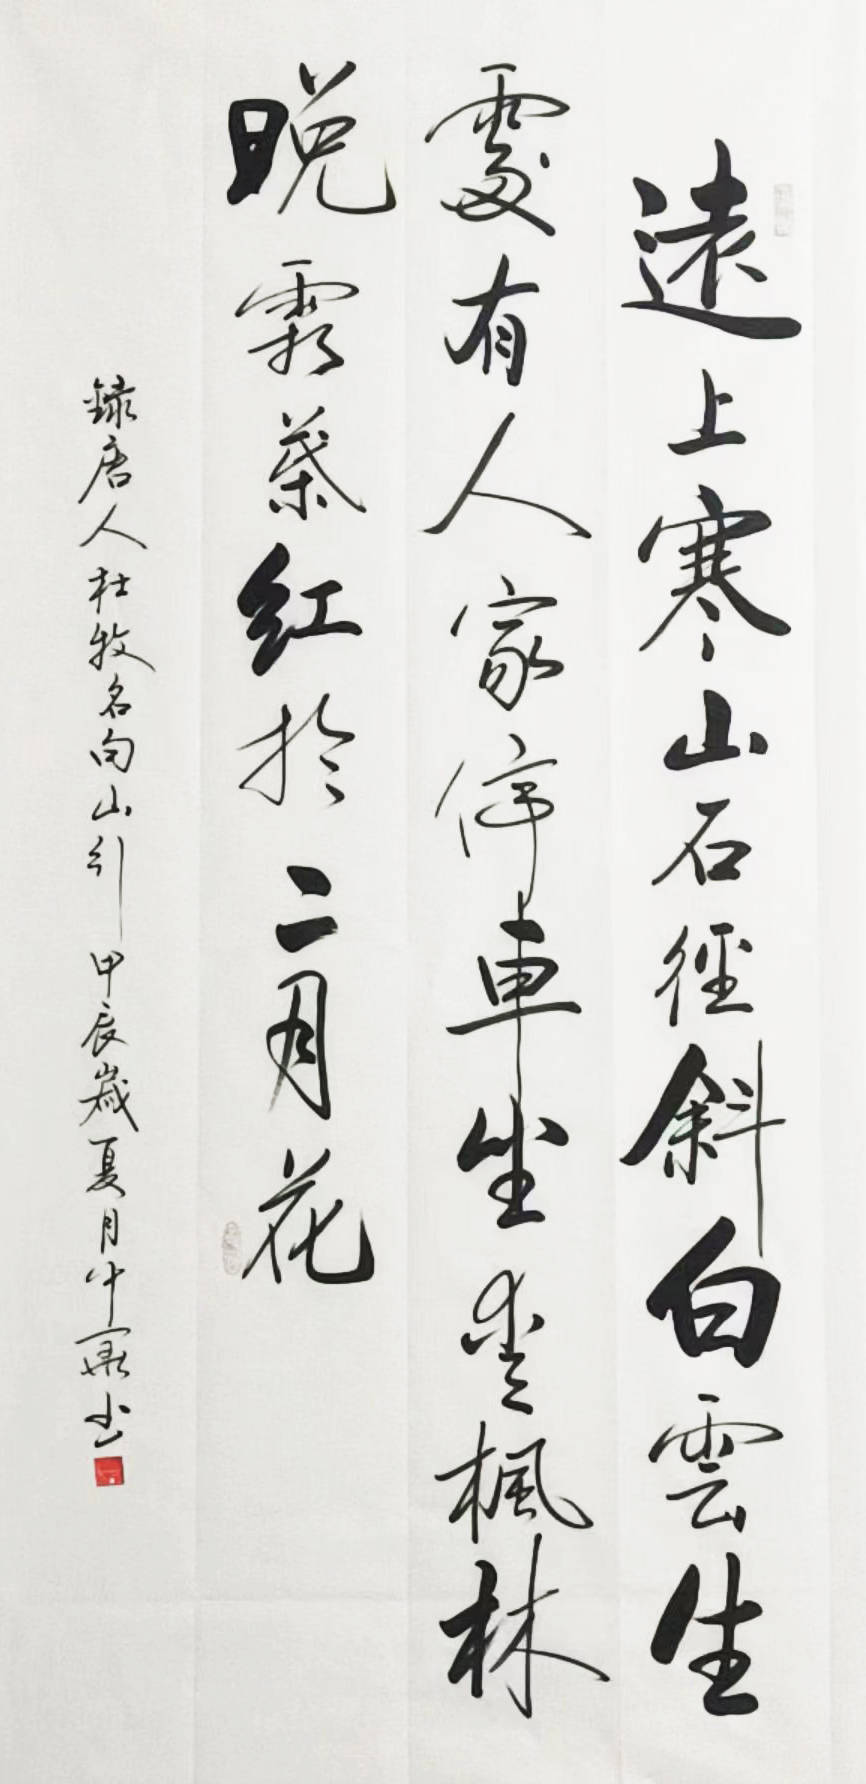 遠上寒山石徑斜白雲生
處有人家停車坐愛楓林
晚霜葉紅於二月花
錄唐人杜牧名句山行甲辰歲夏月中書